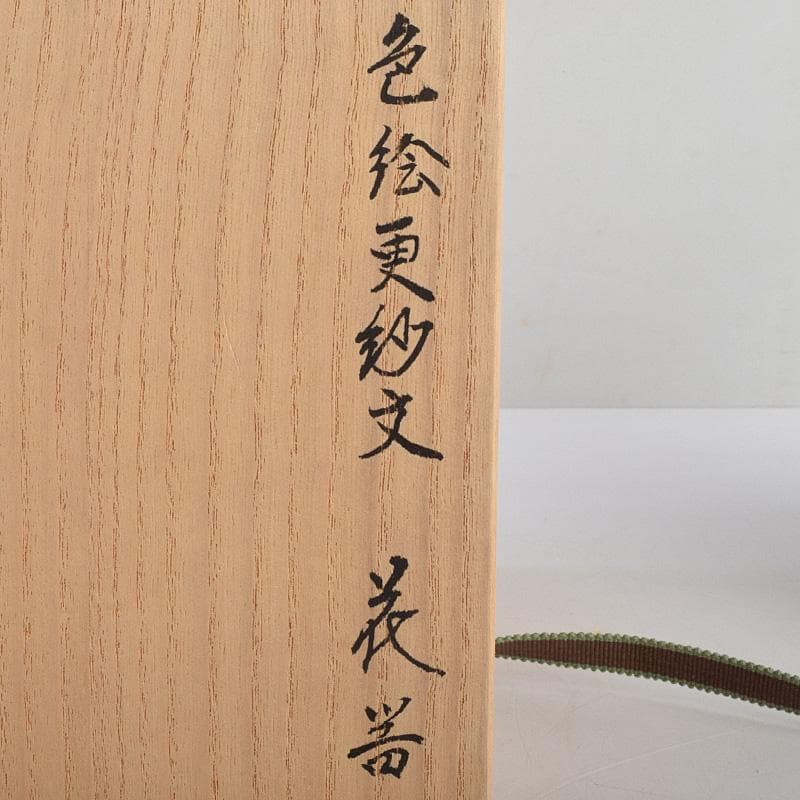 色絵更紗文 花器